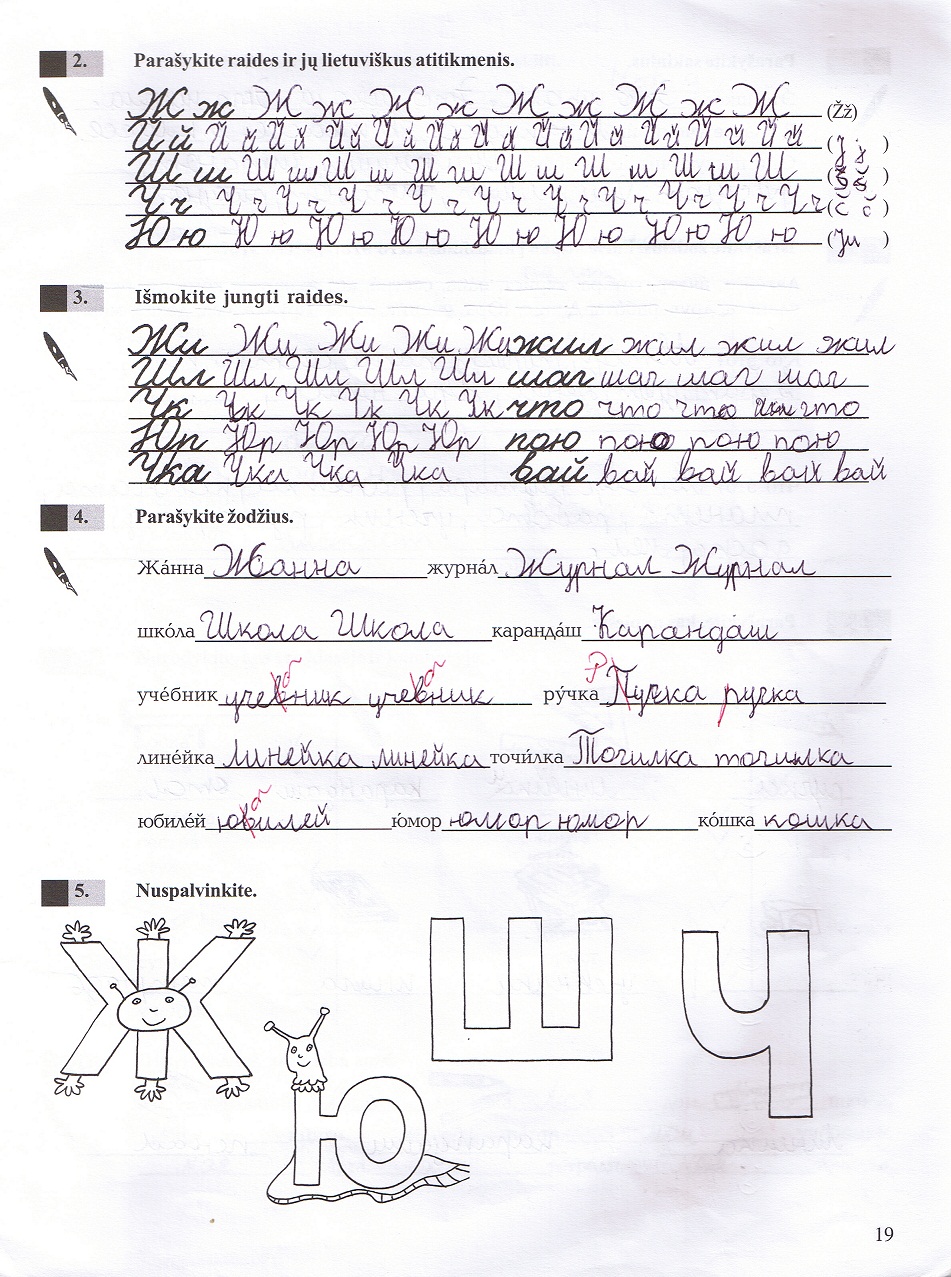 2. Parašykite raides ir jų lietuviškus atitikmenis.
Ж ж Ж ж Ж ж Ж ж Ж ж Ж (Žž)
Й й Й й Й й Й й Й й Й й Й й Й й Й й Й й Й й (J j)
Ш ш Ш ш Ш ш Ш ш Ш ш Ш ш Ш ш Ш (Š š)
Ч ч Ч ч Ч ч Ч ч Ч ч Ч ч Ч ч Ч ч Ч ч Ч ч (Č č)
Ю ю Ю ю Ю ю Ю ю Ю ю Ю ю Ю ю Ю ю (Ju)
3. Išmokite jungti raides.
Жи Жи Жи Жи Жи жил жил жил жил
Шл Шл Шл Шл Шл шаг шаг шаг шаг
Чк Чк Чк Чк Чк Чк что что что что
Юп Юр Юр Юр Юр пою пою пою пою
Чка Чка Чка Чка вай вай вай вай вай
4. Parašykite žodžius.
Жа́нна Жанна журна́л Журнал Журнал
шко́ла Школа Школа каранда́ш Карандаш
уче́бник учевник учевник ру́чка Пучка ручка
лине́йка линейка линейка точи́лка Точилка точилка
юбиле́й ювилей ю́мор юмор юмор ко́шка кошка
5. Nuspalvinkite.
Ж Ю Ш Ч
19